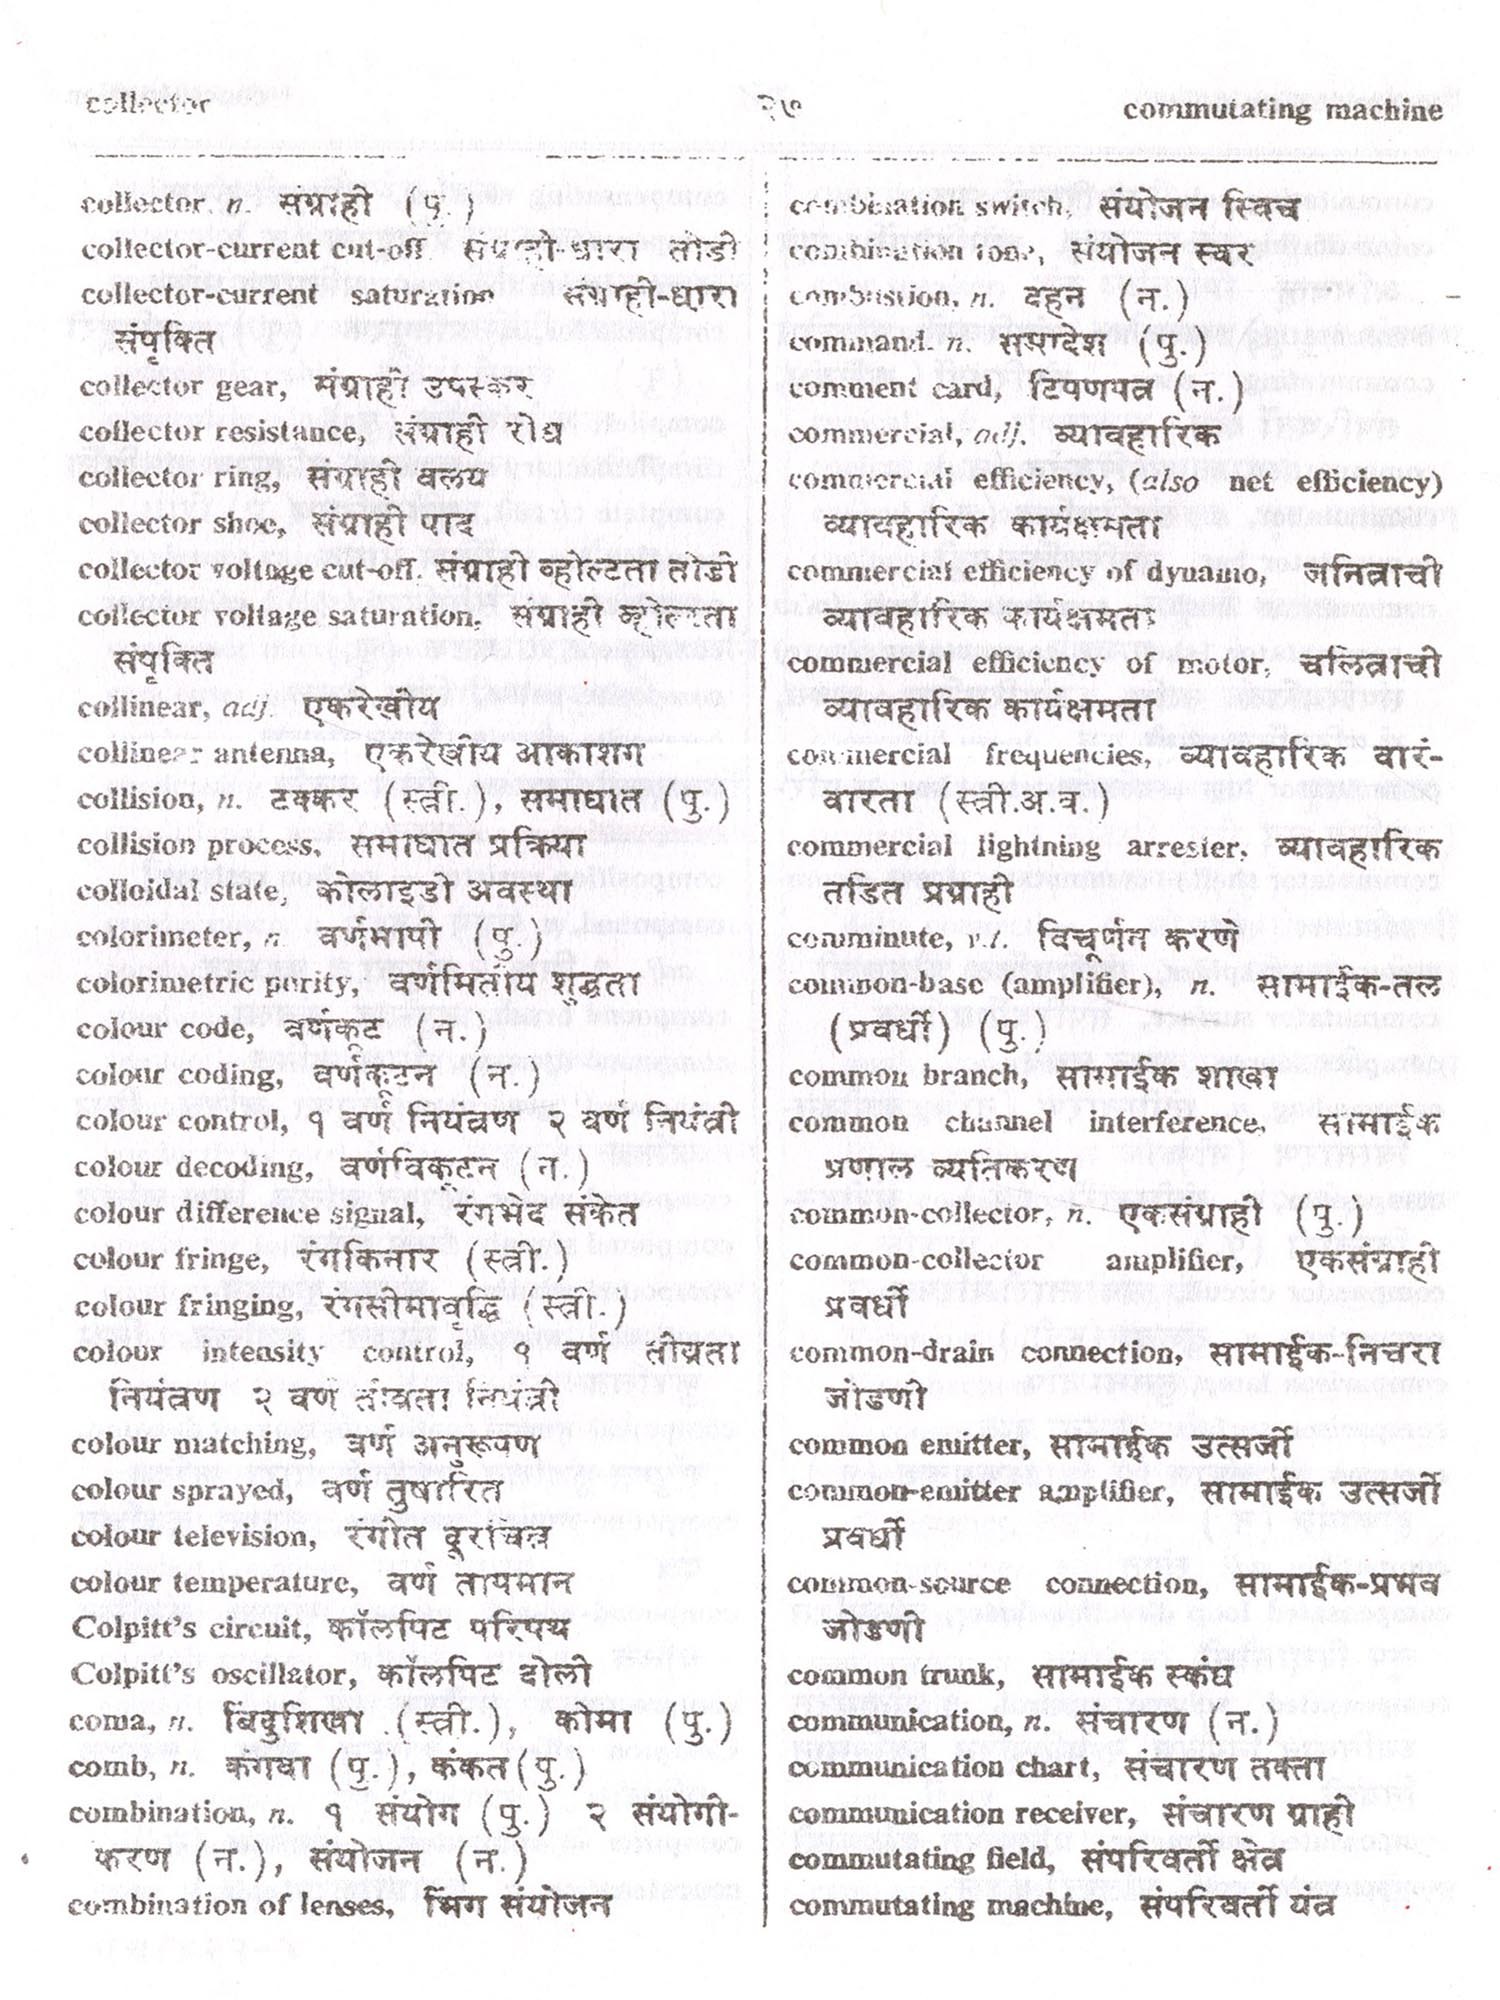 collector
२७
commutating machine
collector, n. संग्राही (पु.)
collector-current cut-off संग्राही-धारा तोडी
collector-current saturation संग्राही-धारा
संपृक्ति
collector gear, संग्राही उपस्कर
collector resistance, संग्राही रोध
collector ring, संग्राही वलय
collector shoe, संग्राही पाद
collector voltage cut-off, संग्राही व्होल्टता तोडी
collector voltage saturation, संग्राही व्होल्टता
संपृक्ति
collinear, adj. एकरेखीय
collinear antenna, एकरेखीय आकाशग
collision, n. टक्कर (स्त्री.), समाघात (पु.)
collision process, समाघात प्रक्रिया
colloidal state, कोलाइडी अवस्था
colorimeter, n. वर्णमापी (पु.)
colorimetric purity, वर्णमितीय शुद्धता
colour code, वर्णकूट (न.)
colour coding, वर्णकूटन (न.)
colour control, १ वर्ण नियंत्रण २ वर्ण नियंत्री
colour decoding, वर्णविकूटन (न.)
colour difference signal, रंगभेद संकेत
colour fringe, रंगकिनार (स्त्री.)
colour fringing, रंगसीमावृद्धि (स्त्री.)
colour intensity control, १ वर्ण तीव्रता
नियंत्रण २ वर्ण तीव्रता नियंत्री
colour matching, वर्ण अनुरूपण
colour sprayed, वर्ण तुषारित
colour television, रंगीत दूरचित्र
colour temperature, वर्ण तापमान
Colpitt's circuit, कॉलपिट परिपथ
Colpitt's oscillator, कॉलपिट दोली
coma, n. बिंदुशिखा (स्त्री.), कोमा (पु.)
comb, n. कंगवा (पु.), कंकत (पु.)
combination, n. १ संयोग (पु.) २ संयोगी-
करण (न.), संयोजन (न.)
combination of lenses, भिंग संयोजन
combination switch, संयोजन स्विच
combination tone, संयोजन स्वर
combustion, n. दहन (न.)
command, n. समादेश (पु.)
comment card, टिपणपत्र (न.)
commercial, adj. व्यावहारिक
commercial efficiency, (also net efficiency)
व्यावहारिक कार्यक्षमता
commercial efficiency of dynamo, जनित्राची
व्यावहारिक कार्यक्षमता
commercial efficiency of motor, चलित्राची
व्यावहारिक कार्यक्षमता
commercial frequencies, व्यावहारिक वारं-
वारता (स्त्री.अ.व.)
commercial lightning arrester, व्यावहारिक
तडित प्रग्राही
comminute, v.t. विचूर्णन करणे
common-base (amplifier), n. सामाईक-तल
(प्रवर्धी) (पु.)
common branch, सामाईक शाखा
common channel interference, सामाईक
प्रणाल व्यतिकरण
common-collector, n. एकसंग्राही (पु.)
common-collector amplifier, एकसंग्राही
प्रवर्धी
common-drain connection, सामाईक-निचरा
जोडणी
common emitter, सामाईक उत्सर्जी
common-emitter amplifier, सामाईक उत्सर्जी
प्रवर्धी
common-source connection, सामाईक-प्रभव
जोडणी
common trunk, सामाईक स्कंध
communication, n. संचारण (न.)
communication chart, संचारण तक्ता
communication receiver, संचारण ग्राही
commutating field, संपरिवर्ती क्षेत्र
commutating machine, संपरिवर्ती यंत्र